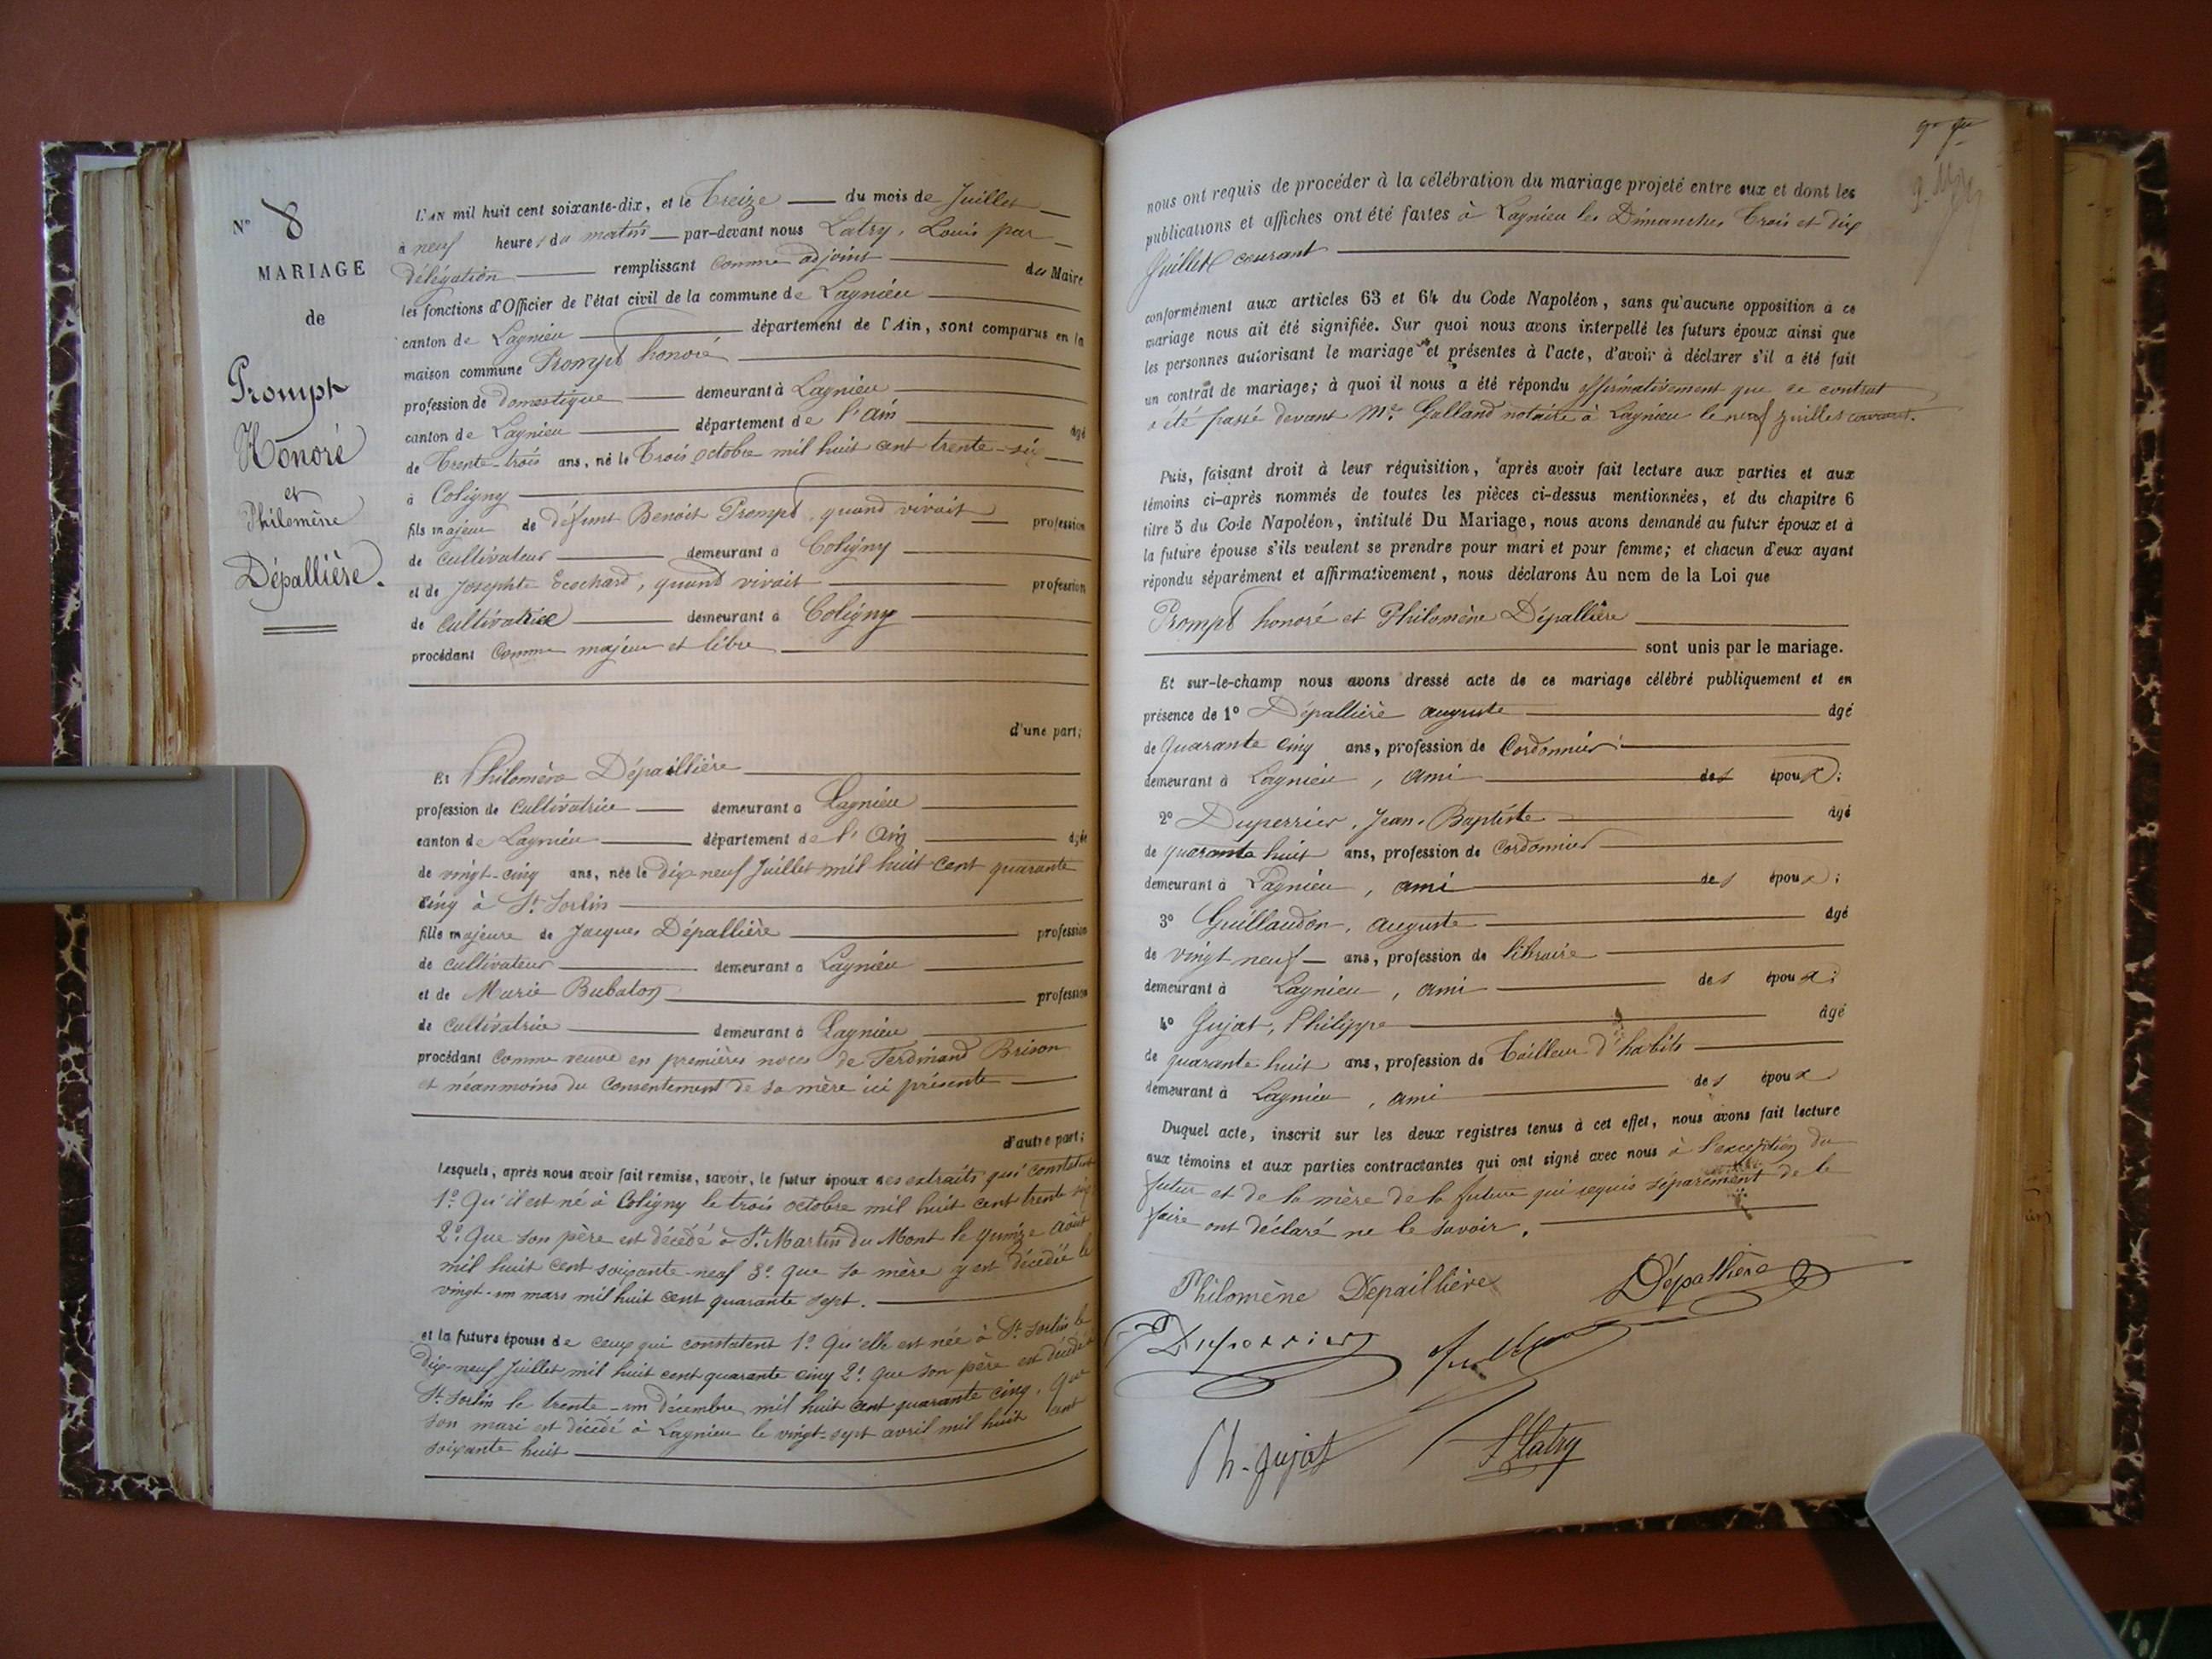 N° 8
MARIAGE
de
Prompt
Honoré
et
Philomène
Dépallière.
L'AN mil huit cent soixante-dix, et le Treize du mois de Juillet
à neuf heures du matin par-devant nous Latry, Louis par
délégation remplissant comme adjoint du Maire
les fonctions d'Officier de l'état civil de la commune de Lagnieu
canton de Lagnieu département de l'Ain, sont comparus en la
maison commune Prompt honoré
profession de domestique demeurant à Lagnieu
canton de Lagnieu département de l'Ain âgé
de Trente-trois ans, né le Trois octobre mil huit cent trente-six
à Coligny
fils majeur de défunt Benoit Prompt, quand vivait profession
de cultivateur demeurant à Coligny
et de Josephte Ecochard, quand vivait profession
de cultivatrice demeurant à Coligny
procédant comme majeur et libre
d'une part;
Et Philomène Dépaillière
profession de cultivatrice demeurant à Lagnieu
canton de Lagnieu département de l'Ain âgée
de vingt-cinq ans, née le dix-neuf Juillet mil huit cent quarante
cinq à St. Sorlin
fille majeure de Jacques Dépallière profession
de cultivateur demeurant à Lagnieu
et de Marie Bubaton profession
de cultivatrice demeurant à Lagnieu
procédant comme veuve en premières noces de Ferdinand Brison
et néanmoins du consentement de sa mère ici présente
d'autre part;
Lesquels, après nous avoir fait remise, savoir, le futur époux des extraits qui constatent
1° Qu'il est né à Coligny le trois octobre mil huit cent trente six
2° Que son père est décédé à St. Martin du Mont le quinze Août
mil huit cent soixante-neuf 3° que sa mère y est décédée le
vingt-un mars mil huit cent quarante sept.
et la future épouse de ceux qui constatent 1° Qu'elle est née à St. Sorlin le
dix-neuf Juillet mil huit cent quarante cinq 2° que son père est décédé à
St. Sorlin le trente-un décembre mil huit cent quarante cinq. Que
son mari est décédé à Lagnieu le vingt-sept avril mil huit cent
soixante huit
nous ont requis de procéder à la célébration du mariage projeté entre eux et dont les
publications et affiches ont été faites à Lagnieu les Dimanches Trois et dix
Juillet courant
conformément aux articles 63 et 64 du Code Napoléon, sans qu'aucune opposition à ce
mariage nous ait été signifiée. Sur quoi nous avons interpellé les futurs époux ainsi que
les personnes autorisant le mariage et présentes à l'acte, d'avoir à déclarer s'il a été fait
un contrat de mariage; à quoi il nous a été répondu affirmativement que ce contrat
a été passé devant Me. Galland notaire à Lagnieu le neuf Juillet courant.
Puis, faisant droit à leur réquisition, après avoir fait lecture aux parties et aux
témoins ci-après nommés de toutes les pièces ci-dessus mentionnées, et du chapitre 6
titre 5 du Code Napoléon, intitulé Du Mariage, nous avons demandé au futur époux et à
la future épouse s'ils veulent se prendre pour mari et pour femme; et chacun d'eux ayant
répondu séparément et affirmativement, nous déclarons Au nom de la Loi que
Prompt honoré et Philomène Dépallière
sont unis par le mariage.
Et sur-le-champ nous avons dressé acte de ce mariage célébré publiquement et en
présence de 1° Dépallière auguste âgé
de Quarante cinq ans, profession de Cordonnier
demeurant à Lagnieu, ami des époux;
2° Duperrier, Jean-Baptiste âgé
de quarante huit ans, profession de Cordonnier
demeurant à Lagnieu, ami des époux;
3° Guillaudon, auguste âgé
de vingt neuf ans, profession de libraire
demeurant à Lagnieu, ami des époux;
4° Gujat, Philippe âgé
de quarante huit ans, profession de Tailleur d'habits
demeurant à Lagnieu, ami des époux
Duquel acte, inscrit sur les deux registres tenus à cet effet, nous avons fait lecture
aux témoins et aux parties contractantes qui ont signé avec nous à l'exception du
futur et de la mère de la future qui requis séparément de le
faire ont déclaré ne le savoir.
Philomène Depaillière Dépallière
Duperrier
Ph. Gujat Latry